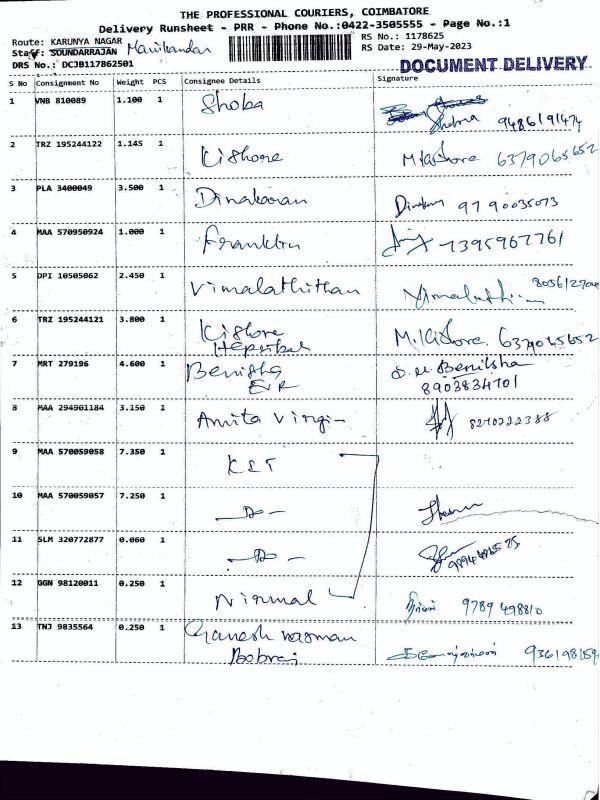 THE PROFESSIONAL COURIERS, COIMBATORE
Delivery Runsheet - PRR - Phone No.:0422-3505555 - Page No.:1
Route: KARUNYA NAGAR
RS No.: 1178625
Staff: SOUNDARRAJAN Manikandan
RS Date: 29-May-2023
DRS No.: DCJB117862501
DOCUMENT DELIVERY
S No Consignment No Weight PCS Consignee Details Signature
1 VNB 810089 1.100 1 Shoba Shobna 9486191474
2 TRZ 195244122 1.145 1 Kishore M.Kishore 6379065652
3 PLA 3400049 3.500 1 Dinakaran 9790035073
4 MAA 570950924 1.000 1 Franklin 7395967761
5 DPI 10505062 2.450 1 Vimalathithan
6 TRZ 195244121 3.800 1 Kishore M.Kishore. 6379065652
Hepzibah
7 MRT 279196 4.600 1 Benisha D.M Benisha
EVR 8903834701
8 MAA 294901184 3.150 1 Amita Virgin 8270222388
9 MAA 570059058 7.350 1 KIT
10 MAA 570059057 7.250 1 -Do-
11 SLM 320772877 0.060 1 -Do-
12 GGN 98120011 0.250 1 Nirmal நிர்மல் 9789498810
13 TNJ 9835564 0.250 1 Ganesh